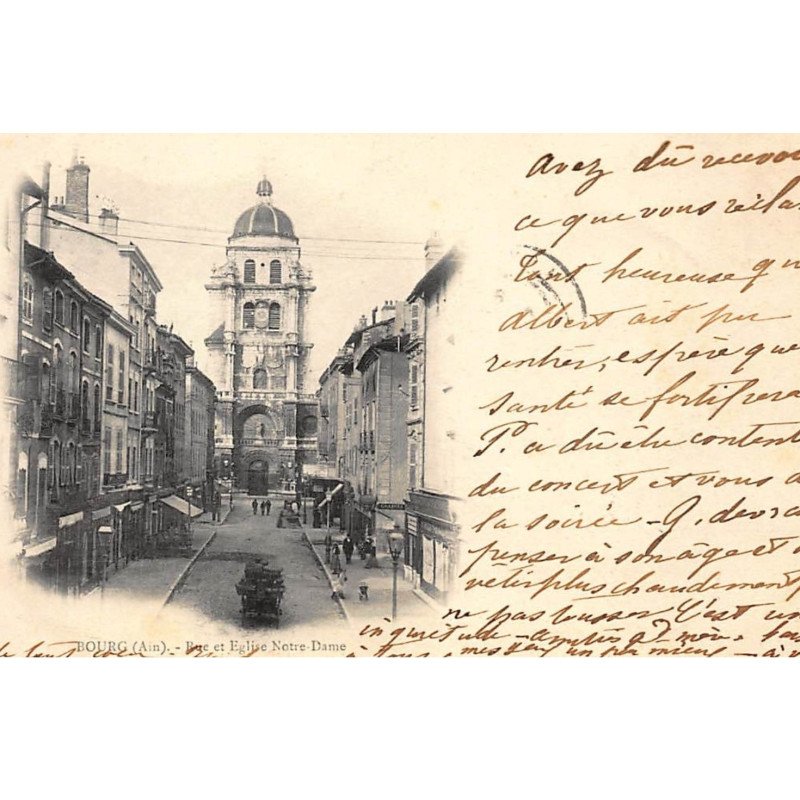 avez dû recevoi
ce que vous récla
Tant heureuse qu
Albert ait pu
rentrer, espère que
Santé se fortifiera
P. a dû être content
du concert et vous a
la soirée - G. devra
penser à son âge et
vêtir plus chaudement
ne pas tousser C'est un
inquiétude -
un peu mieux - à v
BOURG (Ain). - Rue et Eglise Notre-Dame